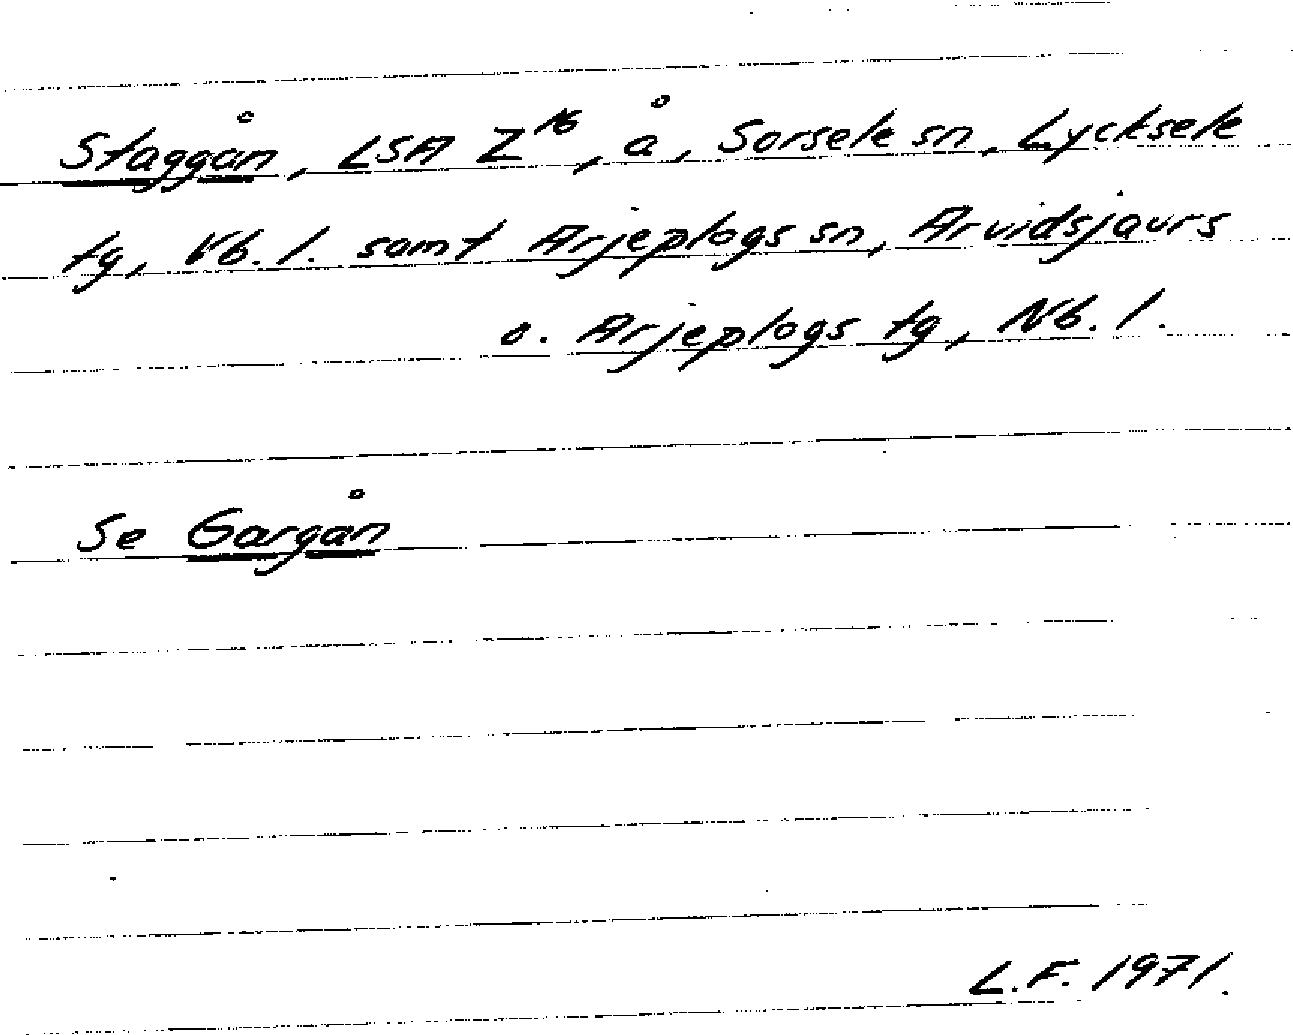 Staggån, LSA Z¹⁶, å, Sorsele sn, Lycksele
tg, Vb. l. samt Arjeplogs sn, Arvidsjaurs
o. Arjeplogs tg, Nb. l.
Se Gargån
L.F. 1971.